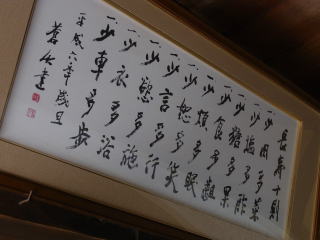 長寿十則
一少肉多菜
一少塩多酢
一少糖多果
一少食多齟
一少煩多眠
一少怒多笑
一少言多行
一少慾多施
一少衣多浴
一少車多歩
平成六年歳旦
書